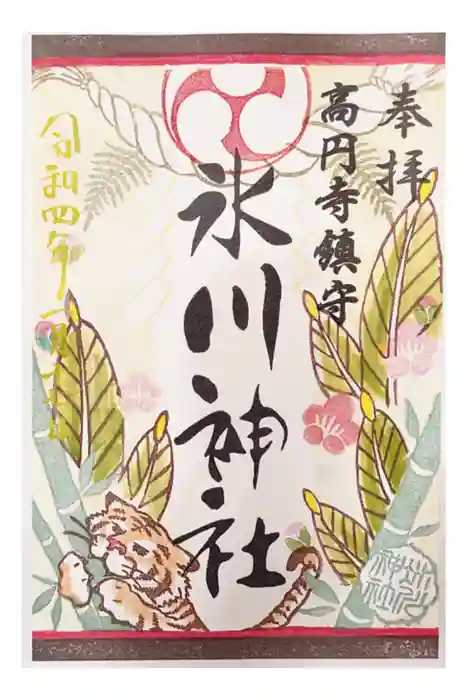 奉拝
高円寺鎮守
氷川神社
令和四年一月一日